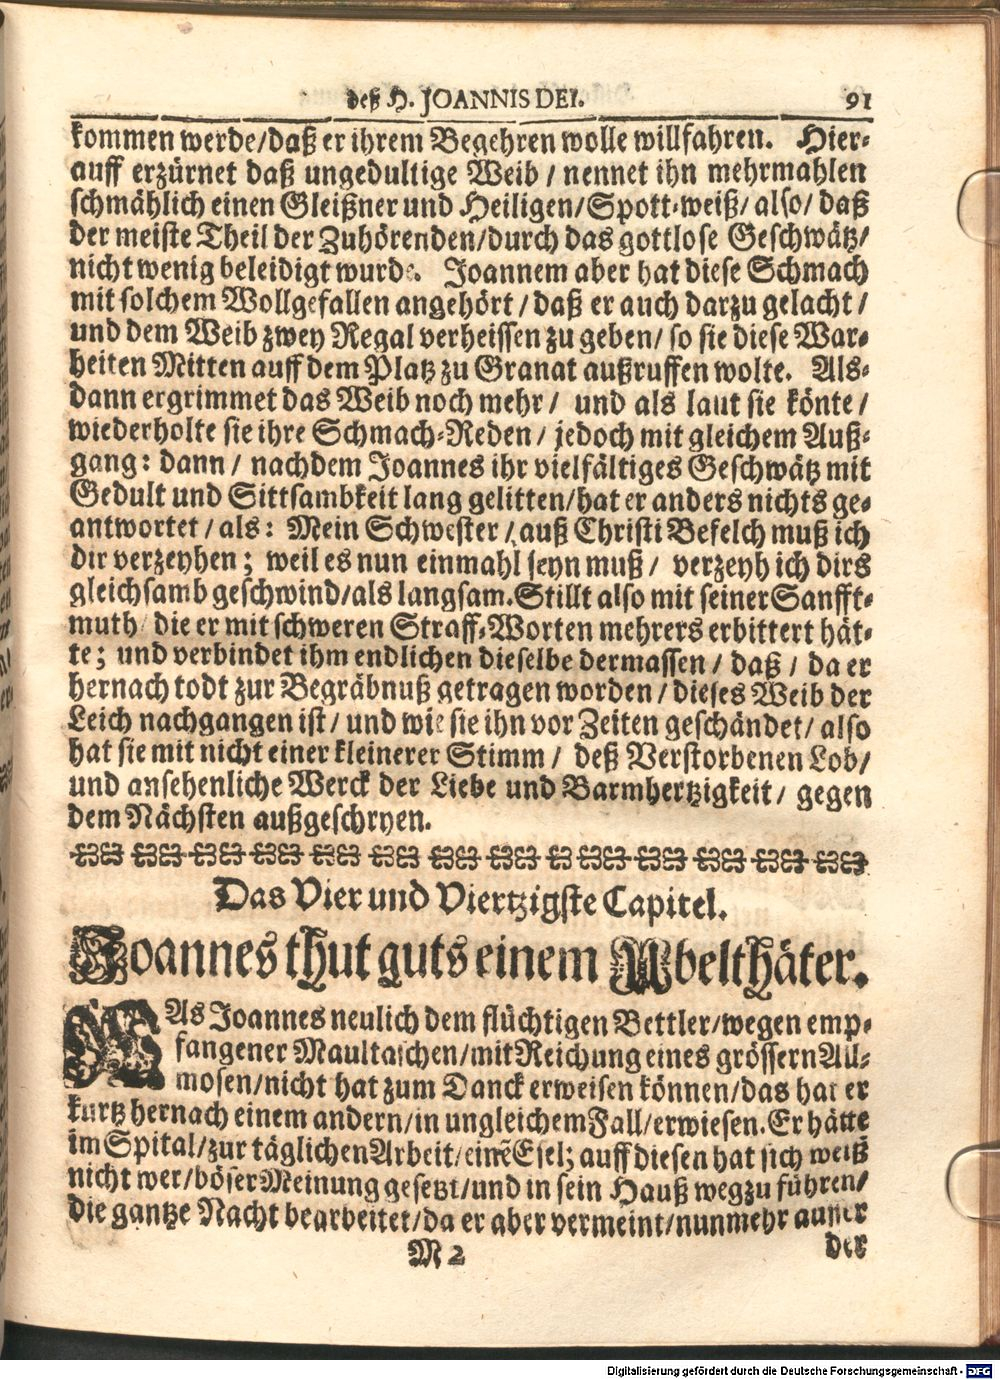 deß H. JOANNIS DEI. 91
kommen werde/daß er ihrem Begehren wolle willfahren. Hier-
auff erzürnet daß ungedultige Weib / nennet ihn mehrmahlen
schmählich einen Gleißner und Heiligen/Spott-weiß/ also/ daß
der meiste Theil der Zuhörenden/durch das gottlose Geschwätz/
nicht wenig beleidigt wurde. Joannem aber hat diese Schmach
mit solchem Wollgefallen angehört / daß er auch darzu gelacht /
und dem Weib zwey Regal verheissen zu geben/ so sie diese War-
heiten Mitten auff dem Platz zu Granat außruffen wolte. Als-
dann ergrimmet das Weib noch mehr / und als laut sie könte /
wiederholte sie ihre Schmach-Reden / jedoch mit gleichem Auß-
gang: dann / nachdem Joannes ihr vielfältiges Geschwätz mit
Gedult und Sittsambkeit lang gelitten/hat er anders nichts ge-
antwortet / als: Mein Schwester / auß Christi Befelch muß ich
dir verzeyhen; weil es nun einmahl seyn muß / verzeyh ich dirs
gleichsamb geschwind/als langsam. Stillt also mit seiner Sanfft-
muth/ die er mit schweren Straff-Worten mehrers erbittert hät-
te; und verbindet ihm endlichen dieselbe dermassen / daß / da er
hernach todt zur Begräbnuß getragen worden / dieses Weib der
Leich nachgangen ist / und wie sie ihn vor Zeiten geschändet/ also
hat sie mit nicht einer kleinerer Stimm / deß Verstorbenen Lob/
und ansehenliche Werck der Liebe und Barmhertzigkeit / gegen
dem Nächsten außgeschryen.
Das Vier und Viertzigste Capitel.
Joannes thut guts einem Ubelthäter.
WAs Joannes neulich dem flüchtigen Bettler/wegen emp-
fangener Maultaschen/mit Reichung eines grössern All-
mosen/nicht hat zum Danck erweisen können/das hat er
kurtz hernach einem andern/in ungleichem Fall/erwiesen. Er hätte
im Spital/zur täglichen Arbeit/einē Esel; auff diesen hat sich weiß
nicht wer/böser Meinung gesetzt/und in sein Hauß weg zu führen/
die gantze Nacht bearbeitet/da er aber vermeint/nunmehr ausser
M 2 der
Digitalisierung gefördert durch die Deutsche Forschungsgemeinschaft - DFG